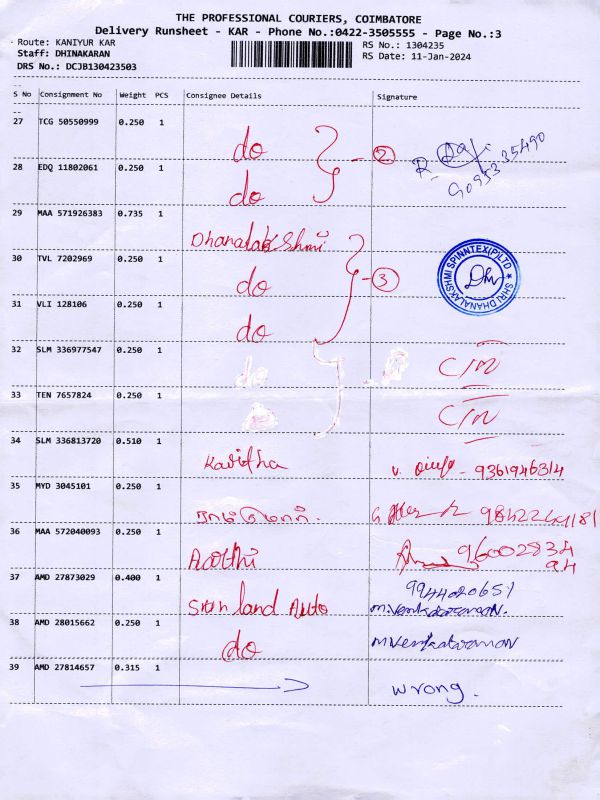 THE PROFESSIONAL COURIERS, COIMBATORE
Delivery Runsheet - KAR - Phone No.:0422-3505555 - Page No.:3
Route: KANIYUR KAR
RS No.: 1304235
Staff: DHINAKARAN
RS Date: 11-Jan-2024
DRS No.: DCJB130423503
S No Consignment No Weight PCS Consignee Details Signature
27 TCG 50550999 0.250 1 do
2
28 EDQ 11802061 0.250 1 do
29 MAA 571926383 0.735 1 Dhanalakshmi
30 TVL 7202969 0.250 1 do
3
SHRI DHANALAKSHMI SPINNTEX(P)LTD
31 VLI 128106 0.250 1 do
32 SLM 336977547 0.250 1 do C/N
33 TEN 7657824 0.250 1 C/N
34 SLM 336813720 0.510 1 Kavitha 9361946314
35 MYD 3045101 0.250 1
36 MAA 572040093 0.250 1 Aarthi 96002834
94
37 AMD 27873029 0.400 1 land Auto 9944020651
M.Venkataraman.
38 AMD 28015662 0.250 1 do M.Venkataraman
39 AMD 27814657 0.315 1 wrong.